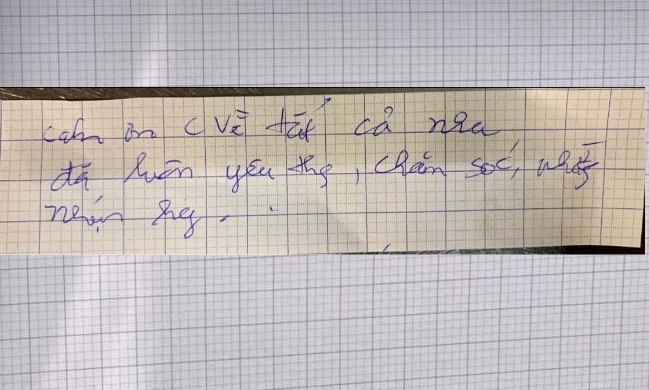 cảm ơn C Về tất cả nha
đã luôn yêu thg, chăm sóc,
nhịn